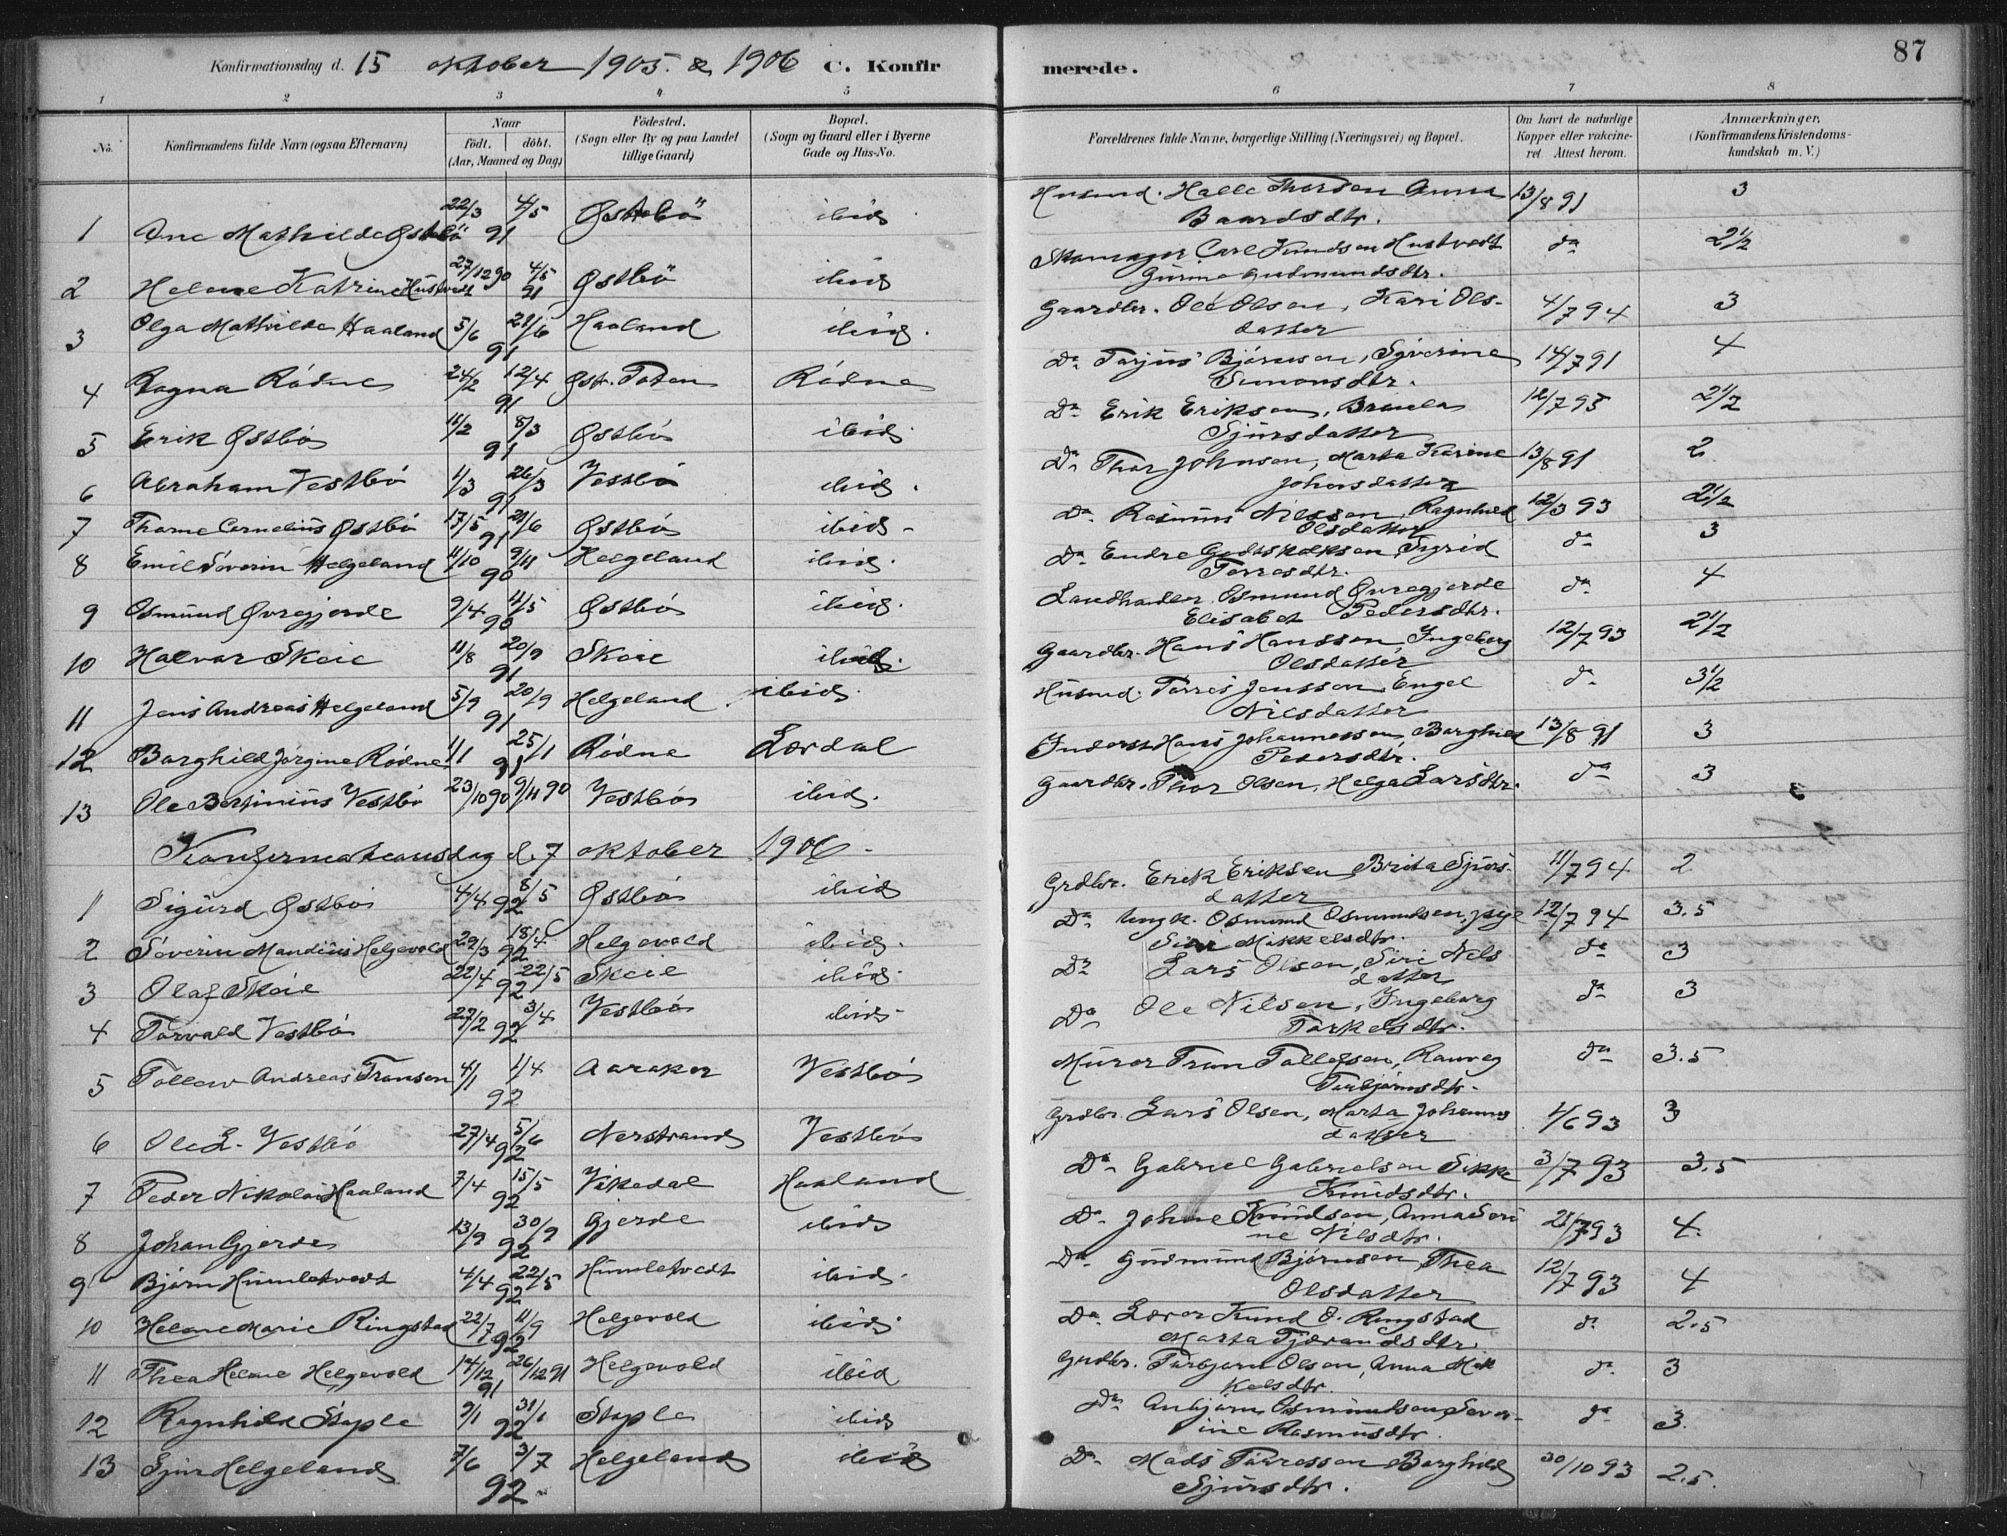 Konfirmationsdag d. 15 oktober 1905. & 1906 C. Konfirmerede. 87
1 2 3 4 5 6 7 8
No. Konfirmandens fulde Navn (ogsaa Efternavn) Naar født. døbt. (Aar, Maaned og Dag) Fødested. (Sogn eller By og paa Landet tillige Gaard) Bopæl. (Sogn og Gaard eller i Byerne Gade og Hus-No. Forældrenes fulde Navne, borgerlige Stilling (Næringsvei) og Bopæl. Om havt de naturlige Kopper eller vakcineret Attest herom. Anmærkninger. (Konfirmandens Kristendomskundskab m. V.)
1 Ane Mathilde Østbö 22/3 4/5 91 Østbö ibid. Husmd. Halle Thorsen Anna Baardsdtr. 13/8 91 3
2 Helene Katrine Hustvedt 27/12 90 4/5 91 Østbö ibid Carl Knudsen Hustvedt Gurine Gudmundsdtr. da 2 1/2
3 Olga Mathilde Haaland 5/6 21/6 91 Haaland ibid. Gaardbr. Ole Olsen, Kari Olsdatter 4/7 94 3
4 Ragna Rødne 24/2 12/4 91 Østr. Toten Rødne Da Torjus Bjørnsen, Syverine Simonsdtr. 14/7 91 4
5 Erik Østbø 11/2 8/3 91 Østbø ibid. Da Erik Eriksen, Sjursdatter 12/7 93 2 1/2
6 Abraham Vestbø 1/3 26/3 91 Vestbø ibid. Da Thor Johnsen, Marta Karine Johnsdatter 13/8 91 2
7 Thome Cornelius Østbø 17/5 21/6 91 Østbø ibid- Da Rasmus Nilssen, Ragnhild Olsdatter 12/3 93 2 1/2
8 Emil Søverin Helgeland 11/10 9/11 90 Helgeland ibid. Da Endre Godtskalksen, Sigrid Torresdtr. da 3
9 Osmund Øvregjerde 9/4 11/5 90 Østbø ibid. Landhandler Osmund Øvregjerde Elisabet Pedersdtr. da 4
10 Halvar Skeie 11/8 20/9 91 Skeie ibid. Gaardbr. Hans Hansson, Ingeborg Olsdatter 12/7 93 2 1/2
11 Jens Andreas Helgeland 5/9 20/9 91 Helgeland ibid. Husmd. Torres Jensson, Engel Nilsdatter da 3 1/2
12 Borghild Jørgine Rødne 1/1 25/1 91 Rødne Lærdal Inderst Hans Johannesson, Borghild Pedersdtr. 13/8 91 3
13 Ole Bertinius Vestbø 23/10 90 9/11 90 Vestbø ibid. Gaardbr. Thor Olsen, Helga Larsdtr. da 3
Konfirmationsdag d. 7 oktober 1906-
1 Sigurd Østbø 4/4 92 8/5 Østbø ibid Grdbr. Erik Eriksen Brita Sjursdatter 11/7 94 2
2 Søverin Mandius Helgevold 29/3 18/4 92 Helgevold ibid. Da Ungk. Osmund Osmundsen, pige Siri Mikkelsdtr. 12/7 94 3.5
3 Olaf Skeie 22/4 22/5 92 Skeie ibid. Da Lars Olsen, Siri Nilsdatter da 3
4 Torvald Vestbø 27/2 3/4 92 Vestbø ibid- Da Ole Nilsen, Ingeborg Torkelsdtr. da 3
5 Tollew Andreas Transen 4/1 1/4 92 Aaraker Vestbø Murer Tran Tollefsen, Ranveg Torbjørnsdtr. da 3.5
6 Ole L. Vestbø 27/4 5/6 92 Nerstrand Vestbø Grdbr. Lars Olsen, Marta Johannesdatter 1/6 93 3
7 Peder Nikolai Haaland 7/4 15/5 92 Vikedal Haaland Da Gabriel Gabrielsen Sikke Knudsdtr. 3/7 93 3.5
8 Johan Gjerde 13/9 30/9 92 Gjerde ibid Da Johne Knudson, Anna Serine Nilsdtr. 21/7 93 4.
9 Bjørn Humletvedt 4/4 22/5 92 Humletvedt ibid. Da Gudmund Bjørnsen, Thea Olsdatter 12/7 93 4
10 Helene Marie Ringstad 22/7 11/9 92 Helgevold ibid. Da Lærer Knud O. Ringstad Marta Tjerandsdtr. da 2.5
11 Thea Helene Helgevold 14/12 91 26/12 91 Helgevold ibid Grdbr. Torbjørn Olsen, Anna Mikkelsdtr. da 3
12 Ragnhild Staple 9/1 31/1 92 Staple ibid Da Anbjørn Osmundsen, Severine Rasmusdtr. da 3.
13 Sjur Helgeland 7/6 3/7 92- Helgeland ibid Da Mads Torresson Borghild Sjursdtr. 30/10 93 2.5.